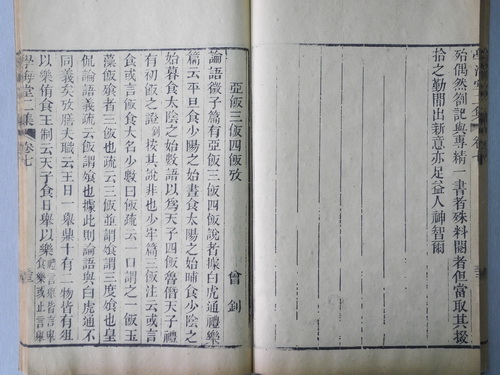 學海堂二集
殆偶然劄記與專精一書者殊科閱者但當取其掇
拾之勤開出新意亦足益人神智爾
亞飯三飯四飯攷
曾釗
論語微子篇有亞飯三飯四飯說者據白虎通禮樂
篇云平旦食少陽之始晝食太陽之始晡食少陰之
始暮食太陰之始數語以爲天子四飯魯僭天子禮
有初飯之證按其說非也少牢篇三飯注云或言
食或言飯食大名小數曰飯疏云一口謂之一飯玉
藻飯飧者三飯也疏云三飯並謂飧謂三度飧也皇
侃論語義疏云飯謂飧也據此則論語與白虎通不
同義矣攷膳夫職云王日一舉鼎十有二物皆有俎
以樂侑食王制云天子食日舉以樂
學海堂二集
卷七